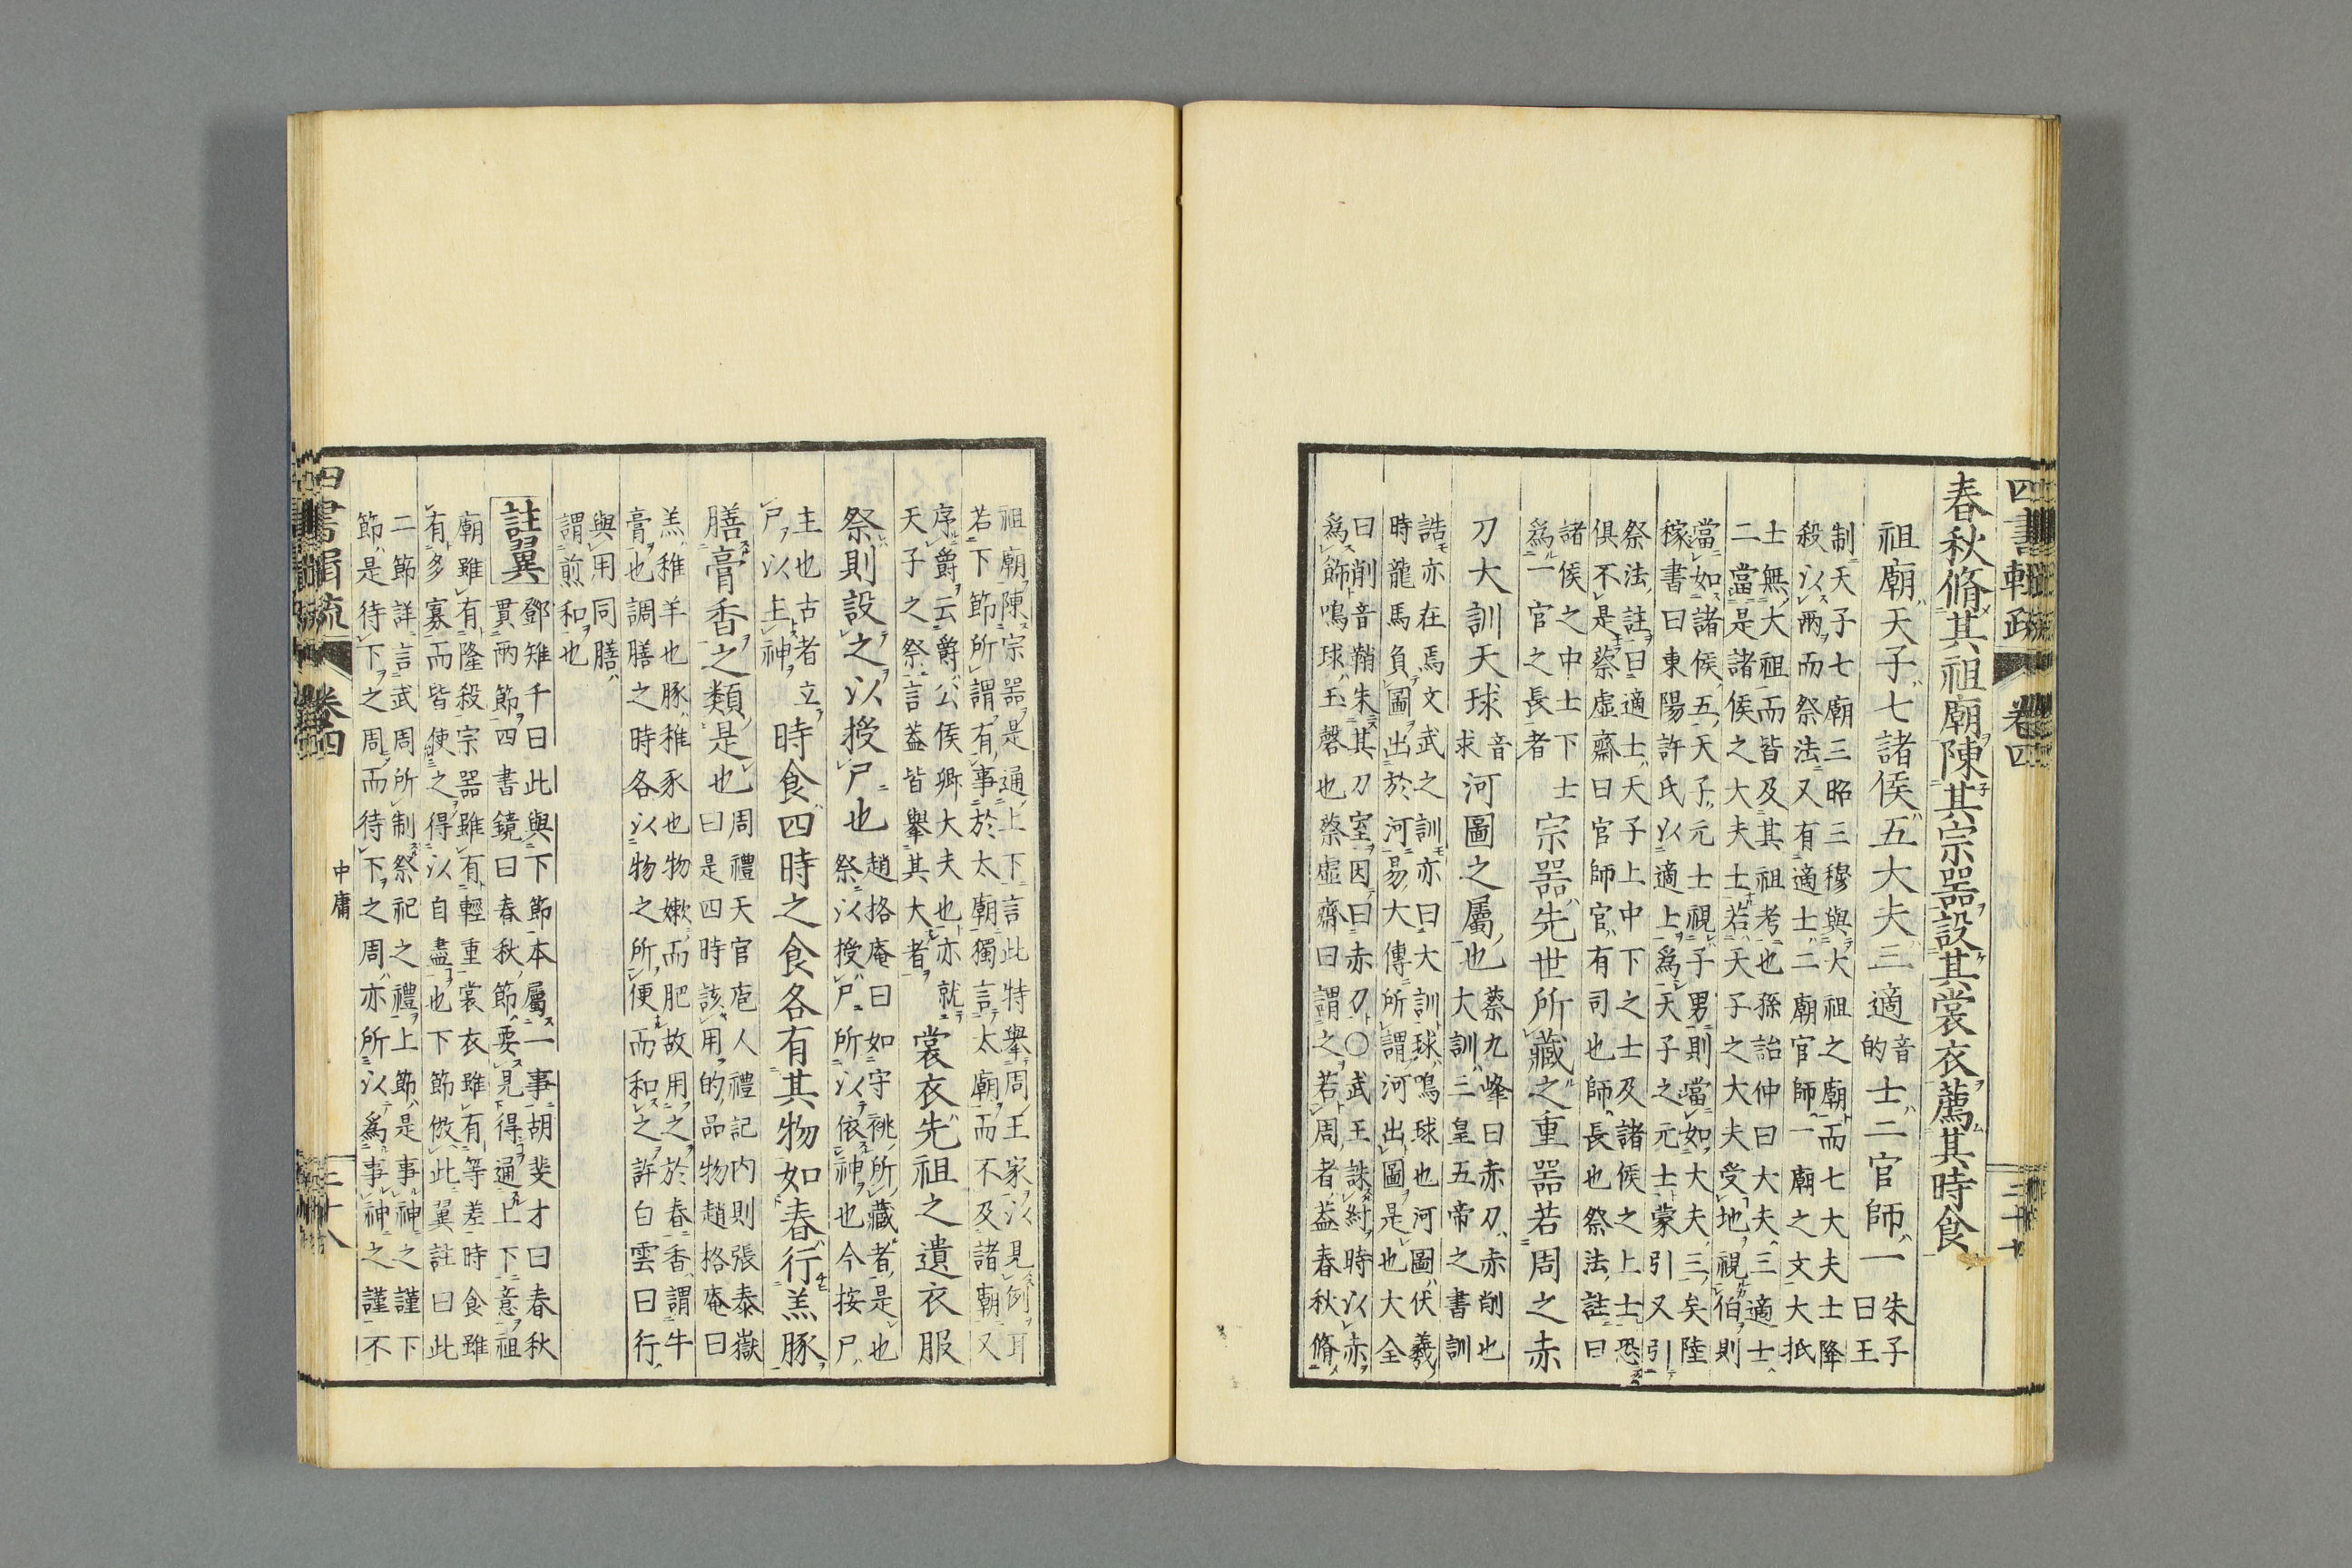 四書輯疏 卷四 三十七
春秋脩其祖廟陳其宗器設其裳衣薦其時食
祖廟天子七諸侯五大夫三適音的士二官師一朱子曰王
制天子七廟三昭三穆與大祖之廟而七大夫士降
殺以兩而祭法又有適士二廟官師一廟之文大抵
士無大祖而皆及其祖考也孫詒仲曰大夫三適士
二當是諸侯之大夫士若天子之大夫受地視伯則
當如諸侯五天子元士視子男則當如大夫三矣陸
稼書曰東陽許氏以適上爲天子之元士蒙引又引
祭法註曰適士天子上中下之士及諸侯之上士恐
俱不是蔡虛齋曰官師官有司也師長也祭法註曰
諸侯之中士下士
爲一官之長者
宗器先世所藏之重器若周之赤
刀大訓天球音求河圖之屬也
蔡九峰曰赤刀赤削也
大訓三皇五帝之書訓
誥亦在焉文武之訓亦曰大訓球鳴球也河圖伏羲
時龍馬負圖出於河易大傳所謂河出圖是也大全
曰削音鞘朱其刀室因曰赤刀○武王誅紂時以赤
爲飾鳴球玉磬也蔡虛齋曰謂之若周者蓋春秋脩
祖廟陳宗器是通上下言此特舉周王家以見例耳
若下節所謂有事於太廟獨言太廟而不及諸廟又
序爵云爵公侯卿大夫也亦就
天子之祭言蓋皆舉其大者
裳衣先祖之遺衣服
祭則設之以授尸也
趙格庵曰如守祧所藏者是也
祭以授尸所以依神也今按尸
主也古者立
尸以主神
時食四時之食各有其物如春行羔豚
膳膏香之類是也
周禮天官庖人禮記內則張泰嶽
曰是四時該用的品物趙格庵曰
羔稚羊也豚稚豕也物嫩而肥故用之於春香謂牛
膏也調膳之時各以物之所便而和之許白雲曰行
與用同膳
謂煎和也
註翼
鄧雉千曰此與下節本屬一事胡斐才曰春秋
貫兩節四書鏡曰春秋節要見得通上下意祖
廟雖有隆殺宗器雖有輕重裳衣雖有等差時食雖
有多寡而皆使之得以自盡也下節倣此翼註曰此
二節詳言武周所制祭祀之禮上節是事神之謹下
節是待下之周而待下之周亦所以爲事神之謹不
中庸
四書輯疏 卷四 三十八